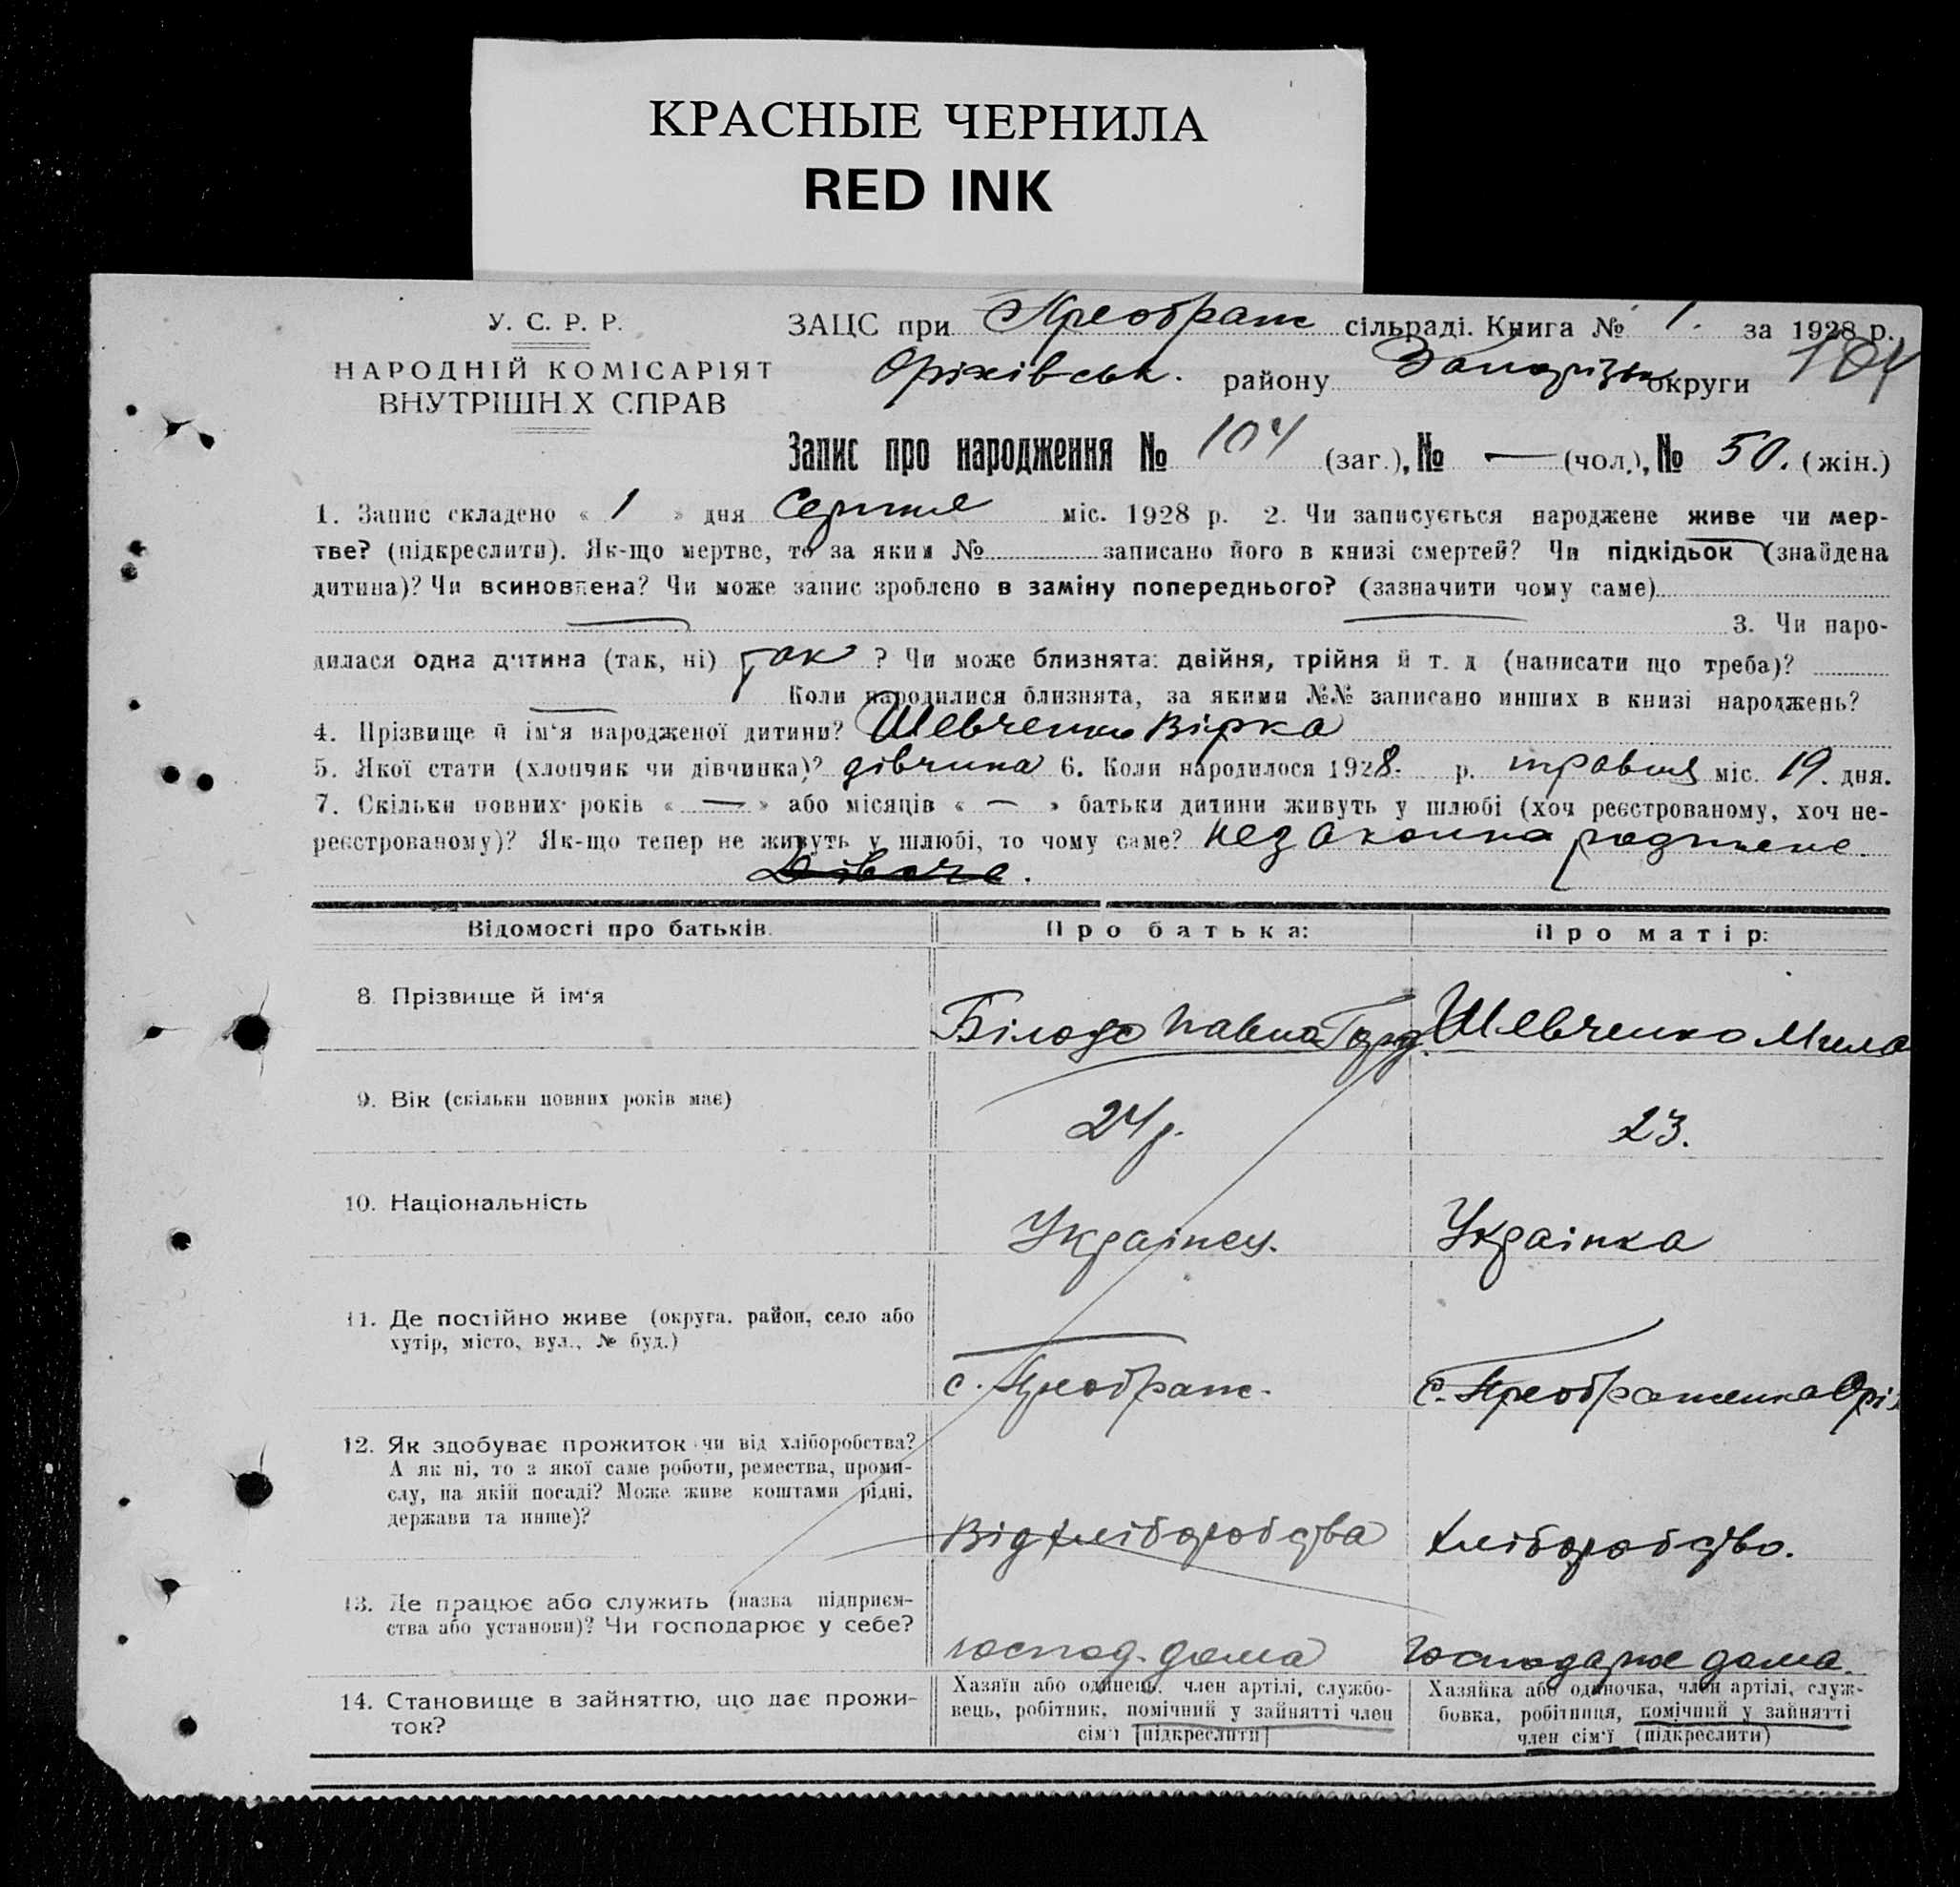 КРАСНЫЕ ЧЕРНИЛА
RED INK
У. С. Р. Р.
НАРОДНІЙ КОМІСАРІЯТ
ВНУТРІШН.Х СПРАВ
ЗАЦС при с Преображ сільраді. Книга № 1. за 1928 р.
Оріхівськ. району Запорізьк округи 104
Запис про народження № 104 (заг.), № — (чол.), № 50. (жін.)
1. Запис складено « 1 » дня Серпня міс. 1928 р. 2. Чи записується народжене живе чи мер-
тве? (підкреслити). Як-що мертве, то за яким № записано його в книзі смертей? Чи підкідьок (знайдена
дитина)? Чи всиновлена? Чи може запис зроблено в заміну попереднього? (зазначити чому саме)
3. Чи наро-
дилася одна дитина (так, ні) так ? Чи може близнята: двійня, трійня й т. д (написати що треба)?
Коли народилися близнята, за якими №№ записано инших в книзі народжень?
4. Прізвище й ім'я народженої дитини? Шевченко Вірка
5. Якої стати (хлопчик чи дівчинка)? дівчина 6. Коли народилося 1928. р. травня міс. 19. дня.
7. Скільки повних років « — » або місяців « — » батьки дитини живуть у шлюбі (хоч реєстрованому, хоч не-
реєстрованому)? Як-що тепер не живуть у шлюбі, то чому саме? незаконна
Відомості про батьків.
Про батька:
Про матір:
8. Прізвище й ім'я
Шевченко
9. Вік (скільки повних років має)
24 р.
23.
10. Національність
Украінец.
Украінка
11. Де постійно живе (округа, район, село або
хутір, місто, вул., № буд.)
с. Преображ.
с. Преображенка Орі
12. Як здобуває прожиток чи від хліборобства?
А як ні, то з якої саме роботи, ремества, проми-
слу, на якій посаді? Може живе коштами рідні,
держави та инше)?
Від хліборобства
хліборобство.
13. Де працює або служить (назва підприєм-
ства або установи)? Чи господарює у себе?
господ. дома
господарює дома.
14. Становище в зайняттю, що дає прожи-
ток?
Хазяїн або одинець, член артілі, службо-
вець, робітник, помічний у зайнятті член
сім'ї (підкреслити)
Хазяйка або одиночка, член артілі, служ-
бовка, робітниця, помічний у зайнятті
член сім'ї (підкреслити)